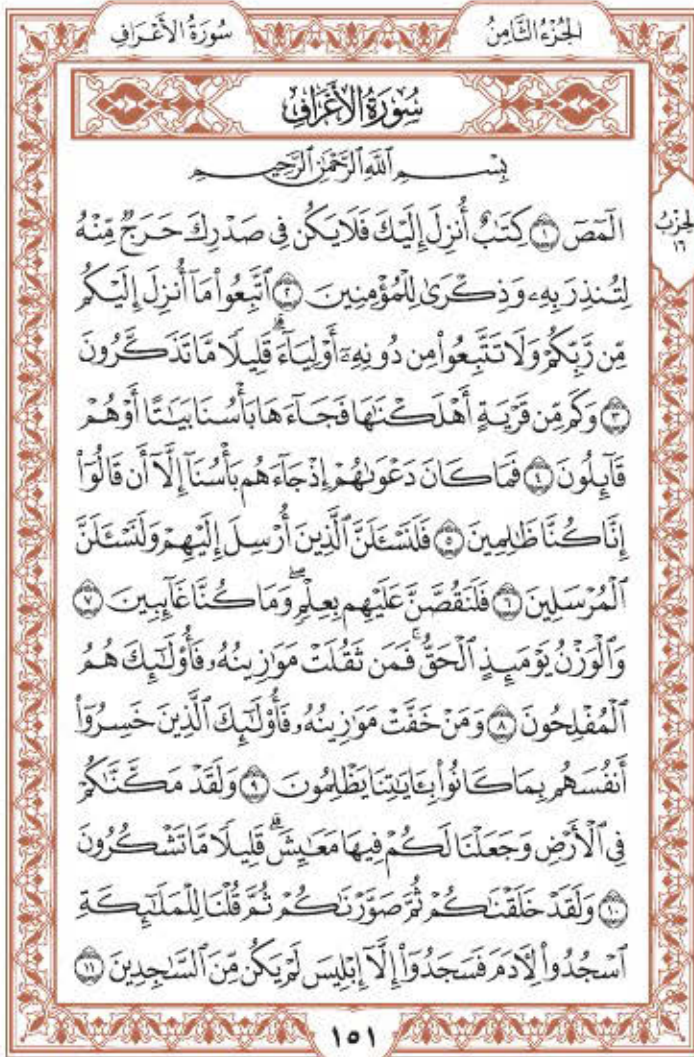 سُورَةُ الأَعْرَافِ    الجُزْءُ الثَّامِنُ
سُورَةُ الأَعْرَافِ
بِسْمِ ٱللَّهِ ٱلرَّحْمَٰنِ ٱلرَّحِيمِ
الٓمٓصٓ ١ كِتَٰبٌ أُنزِلَ إِلَيْكَ فَلَا يَكُن فِى صَدْرِكَ حَرَجٌ مِّنْهُ
الحِزْبُ
١٦
لِتُنذِرَ بِهِۦ وَذِكْرَىٰ لِلْمُؤْمِنِينَ ٢ ٱتَّبِعُوا۟ مَآ أُنزِلَ إِلَيْكُم
مِّن رَّبِّكُمْ وَلَا تَتَّبِعُوا۟ مِن دُونِهِۦٓ أَوْلِيَآءَ ۗ قَلِيلًا مَّا تَذَكَّرُونَ
٣ وَكَم مِّن قَرْيَةٍ أَهْلَكْنَٰهَا فَجَآءَهَا بَأْسُنَا بَيَٰتًا أَوْ هُمْ
قَآئِلُونَ ٤ فَمَا كَانَ دَعْوَىٰهُمْ إِذْ جَآءَهُم بَأْسُنَآ إِلَّآ أَن قَالُوٓا۟
إِنَّا كُنَّا ظَٰلِمِينَ ٥ فَلَنَسْـَٔلَنَّ ٱلَّذِينَ أُرْسِلَ إِلَيْهِمْ وَلَنَسْـَٔلَنَّ
ٱلْمُرْسَلِينَ ٦ فَلَنَقُصَّنَّ عَلَيْهِم بِعِلْمٍ ۖ وَمَا كُنَّا غَآئِبِينَ ٧
وَٱلْوَزْنُ يَوْمَئِذٍ ٱلْحَقُّ ۚ فَمَن ثَقُلَتْ مَوَٰزِينُهُۥ فَأُو۟لَٰٓئِكَ هُمُ
ٱلْمُفْلِحُونَ ٨ وَمَنْ خَفَّتْ مَوَٰزِينُهُۥ فَأُو۟لَٰٓئِكَ ٱلَّذِينَ خَسِرُوٓا۟
أَنفُسَهُم بِمَا كَانُوا۟ بِـَٔايَٰتِنَا يَظْلِمُونَ ٩ وَلَقَدْ مَكَّنَّٰكُمْ
فِى ٱلْأَرْضِ وَجَعَلْنَا لَكُمْ فِيهَا مَعَٰيِشَ ۗ قَلِيلًا مَّا تَشْكُرُونَ
١٠ وَلَقَدْ خَلَقْنَٰكُمْ ثُمَّ صَوَّرْنَٰكُمْ ثُمَّ قُلْنَا لِلْمَلَٰٓئِكَةِ
ٱسْجُدُوا۟ لِـَٔادَمَ فَسَجَدُوٓا۟ إِلَّآ إِبْلِيسَ لَمْ يَكُن مِّنَ ٱلسَّٰجِدِينَ ١١
١٥١